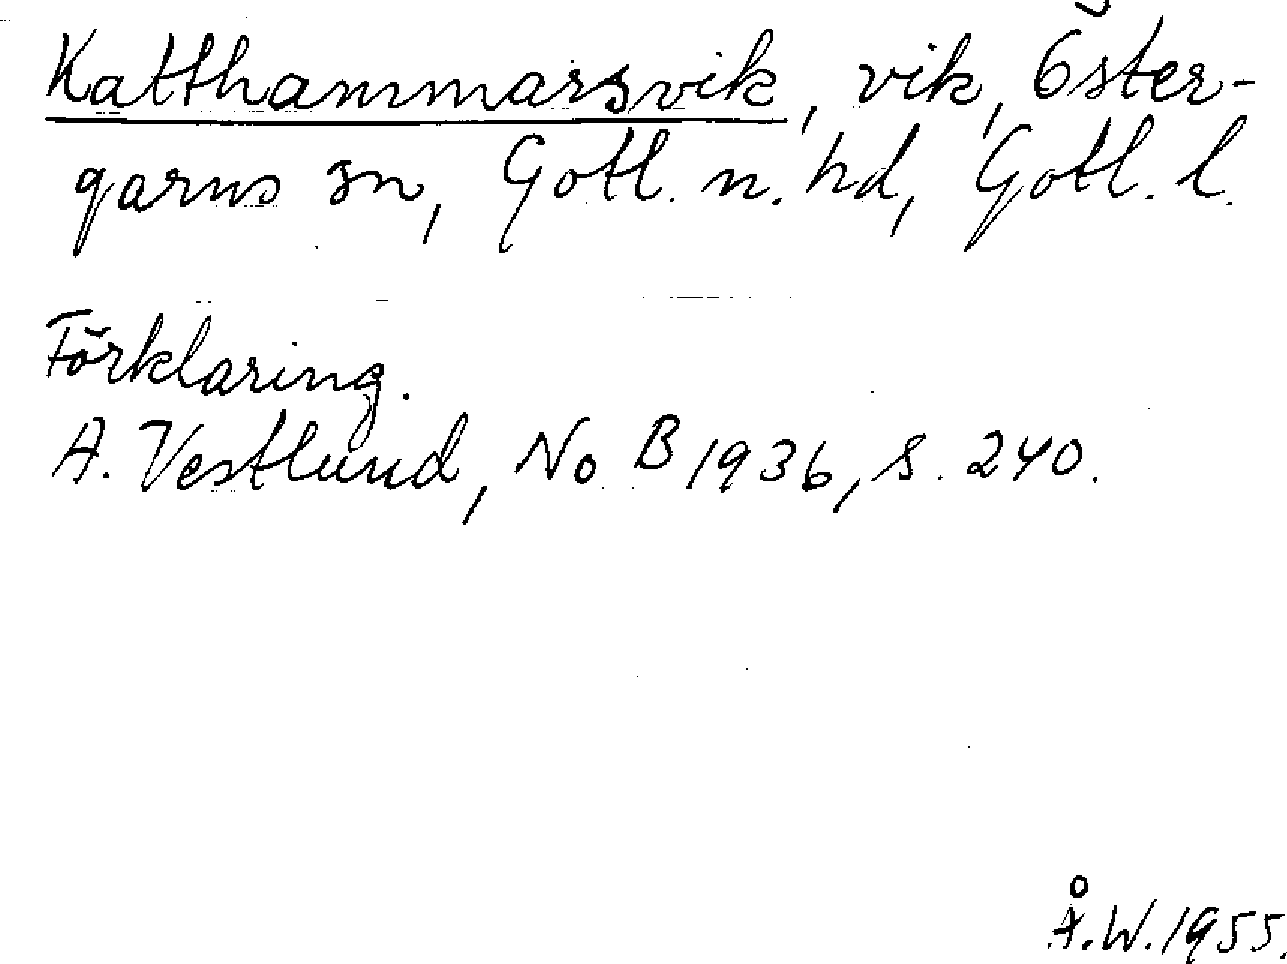 Katthammarsvik, vik, Öster-
garns sn, Gotl. n. hd, Gotl. l.
Förklaring.
A. Vestlund, No B 1936, s. 240.
Å.W. 1955.